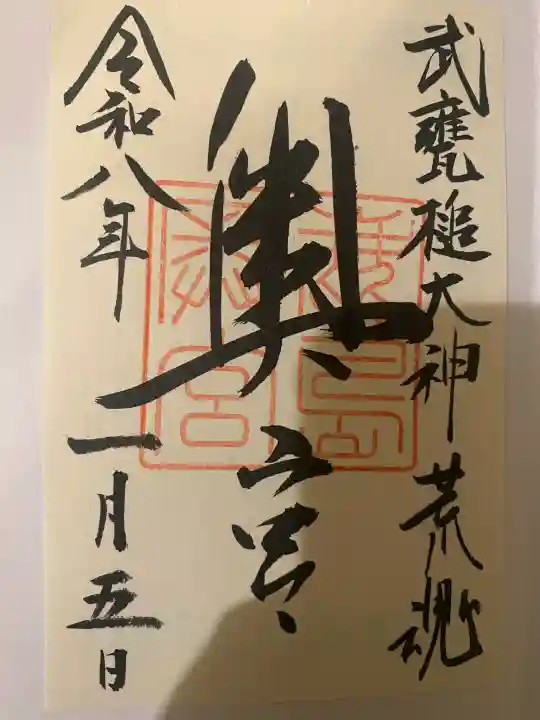 武甕槌大神荒魂
奥宮
令和八年一月五日